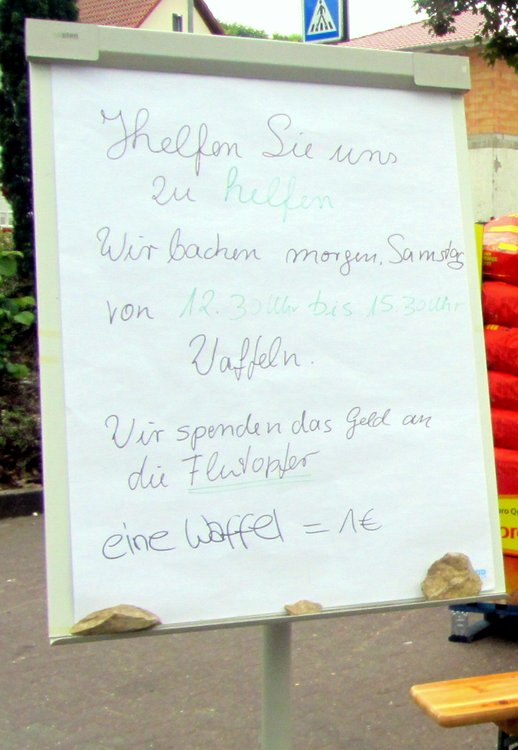 Helfen Sie uns
zu helfen
Wir backen morgen, Samstag
von 12.30 Uhr bis 15.30 Uhr
Waffeln.
Wir spenden das Geld an
die Flutopfer
eine Waffel = 1€